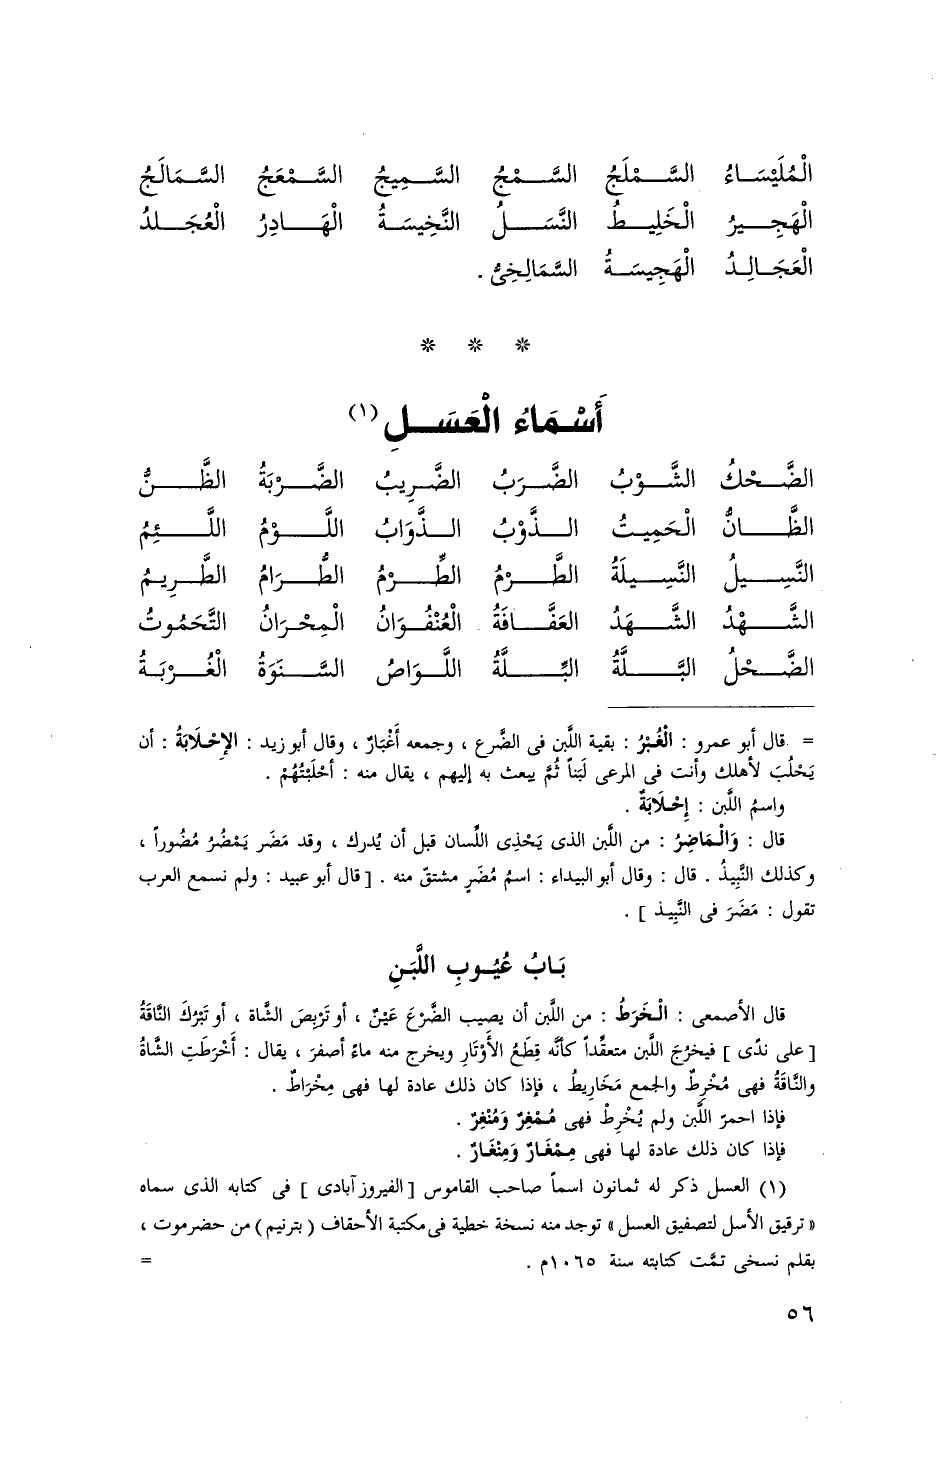 الْمُلَيْسَاءُ السَّمْلَجُ السَّمْجُ السَّمِيجُ السَّمْعَجُ السَّمَالَجُ
الْهَجِيرُ الْخَلِيطُ النَّسَلُ النَّخِيسَةُ الْهَادِرُ الْعُجَلدُ
الْعَجَالِدُ الْهَجِيسَةُ السَّمَالِخِىُّ .
* * *
أَسْمَاءُ الْعَسَلِ (١)
الضَّحْكُ الشَّوْبُ الضَّرَبُ الضَّرِيبُ الضَّرْبَةُ الظَّنُّ
الظَّانُّ الْحَمِيتُ الذَّوْبُ الذَّوَابُ اللَّوْمُ اللَّئِمُ
النَّسِيلُ النَّسِيلَةُ الطَّرْمُ الطِّرْمُ الطُّرَامُ الطَّرِيمُ
الشَّهْدُ الشَّهَدُ الْعَفَّافَةُ الْعُنْفُوَانُ الْمِحْرَانُ التَّحَمُوتُ
الضَّحْلُ الْبَلَّةُ الْبِلَّةُ اللَّوَاصُ السَّنَوَةُ الْغُرْبَةُ
= قال أبو عمرو : الْغُبْرُ : بقية اللَّبن فى الضَّرع ، وجمعه أَغْبَارٌ ، وقال أبو زيد : الإِحْلَابَةُ : أن
يَحْلُبَ لأهلك وأنت فى المرعى لَبَناً ثُمَّ يبعث به إليهم ، يقال منه : أَحْلَبْتُهُمْ .
واسمُ اللَّبن : إِحْلَابَةٌ .
قال : وَالْمَاضِرُ : من اللَّبن الذى يَحْذِى اللِّسان قبل أن يُدرك ، وقد مَضَر يَمْضُرُ مُضُوراً ،
وكذلك النَّبِيذُ . قال : وقال أبو البيداء : اسمُ مُضَرٍ مشتقّ منه . [ قال أبو عبيد : ولم نسمع العرب
تقول : مَضَرَ فى النَّبِيذ ] .
بَابُ عُيُوبِ اللَّبَنِ
قال الأصمعى : الْخَرَطُ : من اللَّبن أن يصيب الضَّرْعَ عَيْنٌ ، أو تَرْبِصَ الشَّاة ، أو تَبْرُكَ النَّاقَةُ
[ على ندًى ] فيخرُجَ اللَّبن متعقِّداً كأنَّه قِطَعُ الأَوْتَارِ ويخرج منه ماءٌ أصفرَ ، يقال : أَخْرَطَتِ الشَّاةُ
والنَّاقَةُ فهى مُخْرِطٌ والجمع مَخَارِيطُ ، فإذا كان ذلك عادة لها فهى مِخْرَاطٌ .
فإذا احمرّ اللَّبن ولم يُخْرِطْ فهى مُمْغِرٌ وَمُنْغِرٌ .
فإذا كان ذلك عادة لها فهى مِمْغَارٌ وَمِنْغَارٌ .
(١) العسل ذكر له ثمانون اسماً صاحب القاموس [ الفيروزآبادى ] فى كتابه الذى سماه
« ترقيق الأسل لتصفيق العسل » توجد منه نسخة خطية فى مكتبة الأحقاف ( بتريم ) من حضرموت ،
بقلم نسخى تمَّت كتابته سنة ١٠٦٥م . =
٥٦